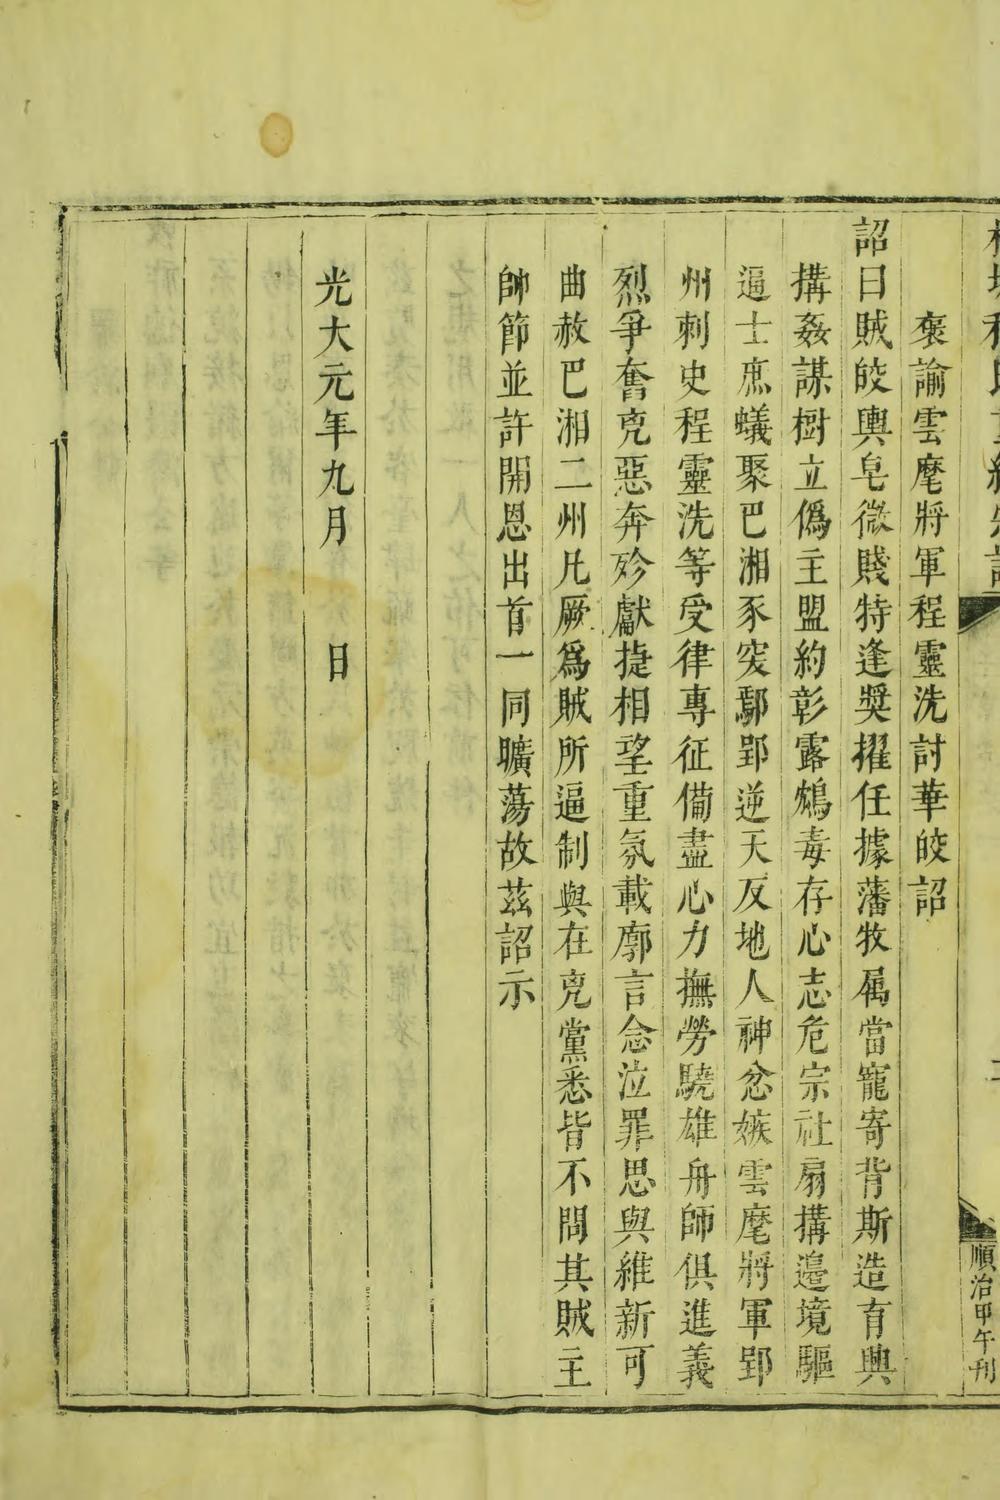 褒諭雲麾將軍程靈洗討華皎詔
詔曰賊皎輿皂微賤特逢奬擢任據藩牧属當寵寄背斯造有興
搆姦謀樹立僞主盟約彰露鴆毒存心志危宗社扇搆邉境驅
逼士庶蟻聚巴湘豕突鄢郢逆天反地人神忿嫉雲麾將軍郢
州刺史程靈洗等受律專征備盡心力撫勞驍雄舟師俱進義
烈爭奮兇惡奔殄獻捷相望重氛載廓言念泣罪思與維新可
曲赦巴湘二州凡厥爲賊所逼制與在兇黨悉皆不問其賊主
帥節並許開恩出首一同曠蕩故茲詔示
光大元年九月　日
順治甲午刊